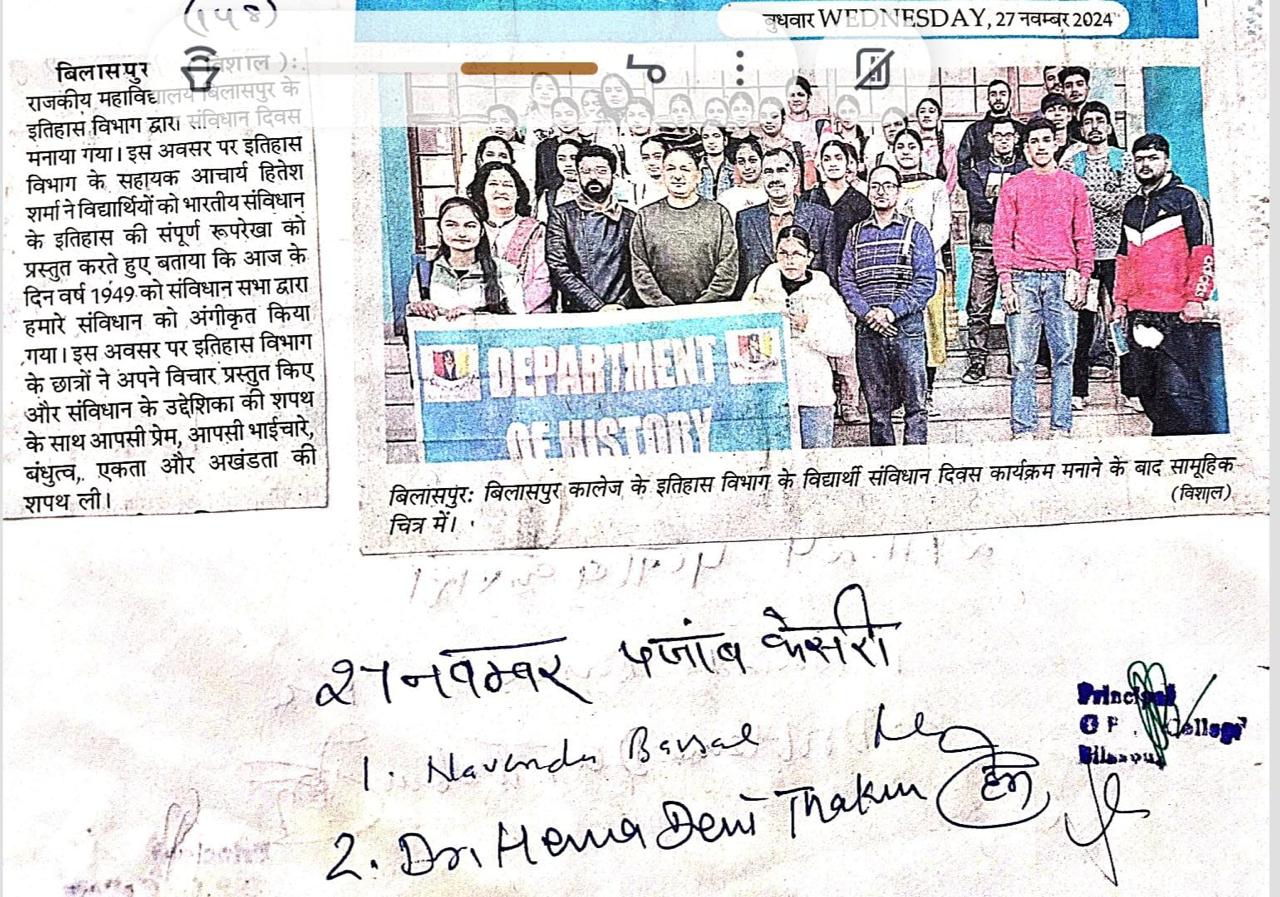 (148)
बुधवार WEDNESDAY, 27 नवम्बर 2024
बिलासपुर विशाल ):
राजकीय महाविद्यालय बिलासपुर के
इतिहास विभाग द्वारा संविधान दिवस
मनाया गया। इस अवसर पर इतिहास
विभाग के सहायक आचार्य हितेश
शर्मा ने विद्यार्थियों को भारतीय संविधान
के इतिहास की संपूर्ण रूपरेखा को
प्रस्तुत करते हुए बताया कि आज के
दिन वर्ष 1949 को संविधान सभा द्वारा
हमारे संविधान को अंगीकृत किया
गया। इस अवसर पर इतिहास विभाग
के छात्रों ने अपने विचार प्रस्तुत किए
और संविधान के उद्देशिका की शपथ
के साथ आपसी प्रेम, आपसी भाईचारे,
बंधुत्व, एकता और अखंडता की
शपथ ली।
DEPARTMENT
OF HISTORY
बिलासपुर: बिलासपुर कालेज के इतिहास विभाग के विद्यार्थी संविधान दिवस कार्यक्रम मनाने के बाद सामूहिक
चित्र में। (विशाल)
27 नवम्बर पंजाब केसरी
1. Navendu Bansal
2. Dr. Hema Devi Thakur हेमा
Principal
College
Bilaspur